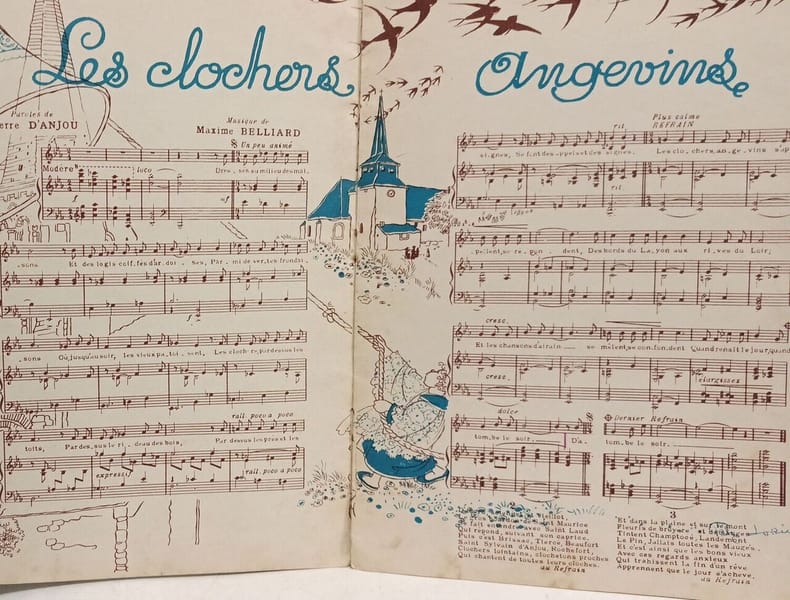 Les clochers angevins
Paroles de
erre D'ANJOU
Musique de
Maxime BELLIARD
Un peu animé
Modéré
loco
Dres - sés au milieu des mai -
f
mf
- sons Et des logis coif - fés d'ar - doi - ses, Par - mi de ver - tes frondai -
- sons Où jusqu'au soir, les vieux pa - toi - sent, Les cloch - ers par dessus les
toits, Par des - sus le ri - deau des bois, Par dessus les prés et les
rall. poco a poco
express.
rall. poco a poco
rit.
Plus calme
REFRAIN
vi - gnes, Se font des appels et des signes. Les clo - chers an - ge - vins s'ap -
rit
- pellent, se ré - pon - dent, Des bords du La - yon aux ri - ves du Loir;
cresc.
Et les chansons d'airain se mêlent, se con - fon - dent Quand renaît le jour, quand
cresc.
élargissez
dolce
Dernier Refrain
tom - be le soir. D'a -
tom - be le soir.
3
Maurice
se fait entendre avec Saint Laud
Qui répond, suivant son caprice.
Puis c'est Brissac, Tiercé, Beaufort
Saint Sylvain d'Anjou, Rochefort,
Clochers lointains, clochetons proches
Qui chantent de toutes leurs cloches.
au Refrain
"Et dans la plaine et sur le mont
Fleuris de bruyère et de
Tintent Champtocé, Landemont
Le Pin, Jallais toutes les Mauges.
Et c'est ainsi que les bons vieux
Avec ces regards anxieux
Qui trahissent la fin d'un rêve
Apprennent que le jour s'achève.
au Refrain